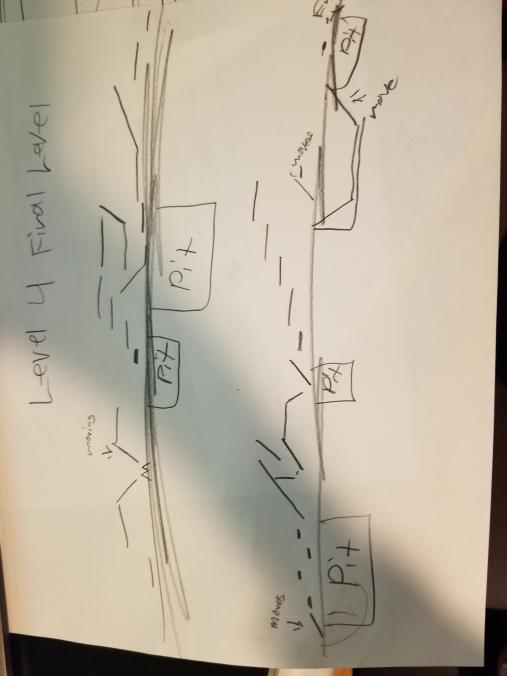 Level 4 Final Level
moving
Pit
Pit
moves
Pit
Pit
moves
Pit
move